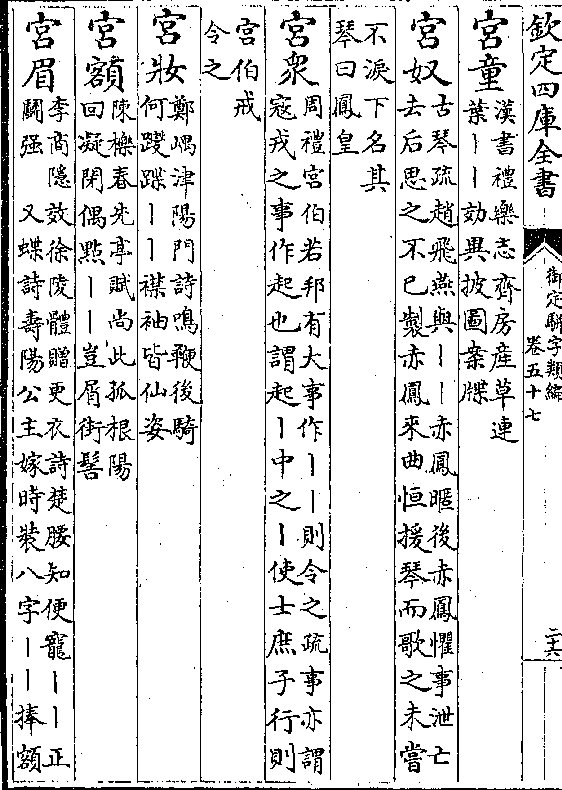 欽定四庫全書
御定騈字類編
卷五十七
二十六
宮童
漢書禮樂志齊房産草連
葉丨丨効異披圖案牒
宮奴
古琴疏趙飛燕與丨丨赤鳳暱後赤鳳懼事泄亡
去后思之不已製赤鳳來曲恒援琴而歌之未嘗
不淚下名其
琴曰鳳皇
宮衆
周禮宮伯若邦有大事作丨丨則令之疏事亦謂
寇戎之事作起也謂起丨中之丨使士庶子行則
宮伯戒
令之
宮妝
鄭嵎津陽門詩鳴鞭後騎
何躞蹀丨丨襟袖皆仙姿
宮額
陳櫟春先亭賦尚此孤根陽
回凝閉偶點丨丨豈屑街髻
宮眉
李商隱效徐陵體贈更衣詩楚腰知便寵丨丨正
鬬强　又蝶詩壽陽公主嫁時裝八字丨丨捧額